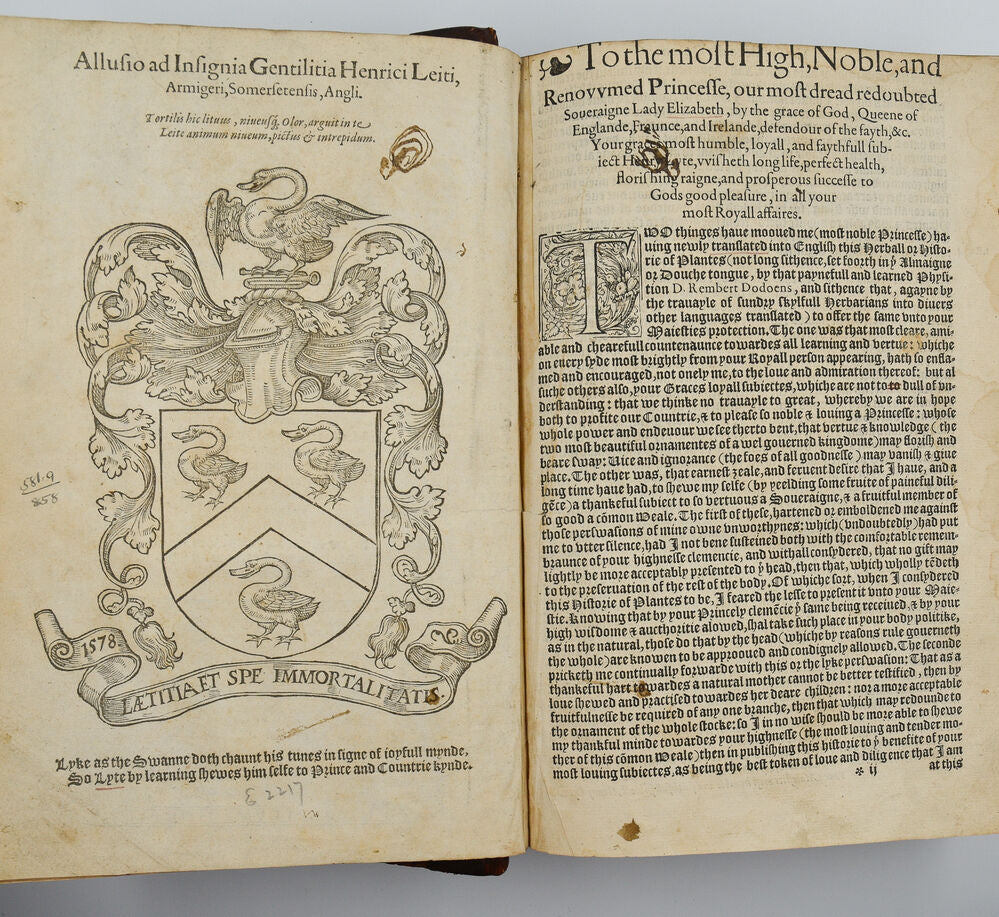 Allusio ad Insignia Gentilitia Henrici Leiti,
Armigeri, Somersetensis, Angli.
Tortilis hic lituus, niveusq́, Olor, arguit in te
Leite animum niueum, pictus & intrepidum.
581.9
858
1578.
LÆTITIA ET SPE IMMORTALITATIS.
Lyke as the Swanne doth chaunt his tunes in signe of ioyfull mynde,
So Lyte by learning shewes him selfe to Prince and Countrie kynde.
2217
To the most High, Noble, and
Renovvmed Princesse, our most dread redoubted
Soueraigne Lady Elizabeth, by the grace of God, Queene of
Englande, Fraunce, and Irelande, defendour of the fayth, &c.
Your graces most humble, loyall, and faythfull sub-
iect Henry Lyte, vvisheth long life, perfect health,
florishing raigne, and prosperous successe to
Gods good pleasure, in all your
most Royall affaires.
TWO thinges haue mooued me (most noble Princesse) ha-
uing newly translated into English this Herball or Histo-
rie of Plantes (not long sithence, set foorth in ẙ Almaigne
or Douche tongue, by that paynefull and learned Physi-
tion D. Rembert Dodoens, and sithence that, agayne by
the trauayle of sundry skylfull Herbarians into diuers
other languages translated) to offer the same vnto your
Maiesties protection. The one was that most cleare, ami-
able and chearefull countenaunce towardes all learning and vertue: whiche
on euery syde most brightly from your Royall person appearing, hath so enfla-
med and encouraged, not onely me, to the loue and admiration thereof: but al
suche others also, your Graces loyall subiectes, whiche are not to to dull of vn-
derstanding: that we thinke no trauayle to great, whereby we are in hope
both to profite our Countrie, & to please so noble & louing a Princesse: whose
whole power and endeuour we see therto bent, that vertue & knowledge (the
two most beautiful ornamentes of a wel gouerned kingdome) may florish and
beare sway: Vice and ignorance (the foes of all goodnesse) may vanish & giue
place. The other was, that earnest zeale, and feruent desire that I haue, and a
long time haue had, to shewe my selfe (by yeelding some fruite of paineful dili-
gẽce) a thankeful subiect to so vertuous a Soueraigne, & a fruitful member of
so good a cõmon Weale. The first of these, hartened or emboldened me against
those perswasions of mine owne vnworthynes: which (vndoubtedly) had put
me to vtter silence, had I not bene susteined both with the comfortable remem-
braunce of your highnesse clemencie, and withall consydered, that no gift may
lightly be more acceptably presented to ẙ head, then that, which wholly tẽdeth
to the preseruation of the rest of the body, Of whiche sort, when I consydered
this Historie of Plantes to be, I feared the lesse to present it vnto your Maie-
stie. Knowing that by your Princely clemẽcie ẙ same being receiued, & by your
high wisdome & aucthoritie alowed, shal take such place in your body politike,
as in the natural, those do that by the head (whiche by reasons rule gouerneth
the whole) are knowen to be approoued and condignely allowed. The seconde
pricketh me continually forwarde with this or the lyke perswasion: That as a
thankeful hart towardes a natural mother cannot be better testified, then by
loue shewed and practised towardes her deare children: nor a more acceptable
fruitfulnesse be required of any one branche, then that which may redounde to
the ornament of the whole stocke: so I in no wise should be more able to shewe
my thankful minde towardes your highnesse (the most louing and tender mo-
ther of this cõmon Weale) then in publishing this historie to ẙ benefite of your
most louing subiectes, as being the best token of loue and diligence that I am
* ij
at this